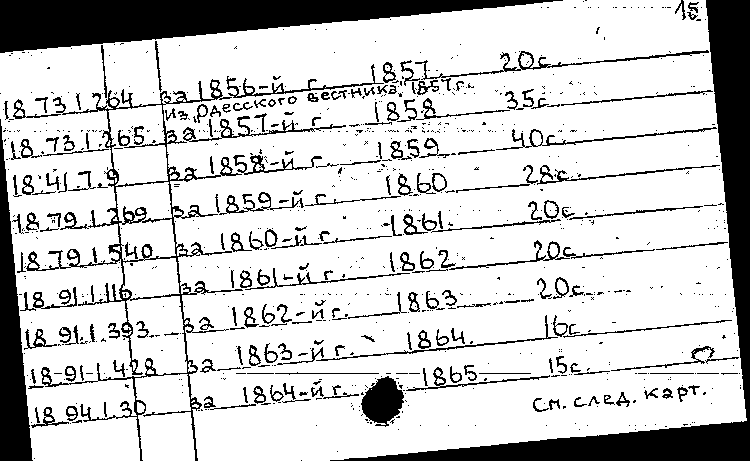 15
18.73.1.264 за 1856-й г. 1857. 20с.
Из "Одесского вестника", 1857г.
18.73.1.265. за 1857-й г. 1858 35с
18.41.7.9 за 1858-й г. 1859 40с.
18.79.1.269 за 1859-й г. 1860 28с.
18.79.1.540 за 1860-й г. 1861. 20с.
18.91.1.116 за 1861-й г. 1862 20с.
18 91.1.393 за 1862-й г. 1863 20с.
18-91-1.428 за 1863-й г. 1864. 16с.
18 94.1.30 за 1864-й г. 1865. 15с.
См. след. карт.